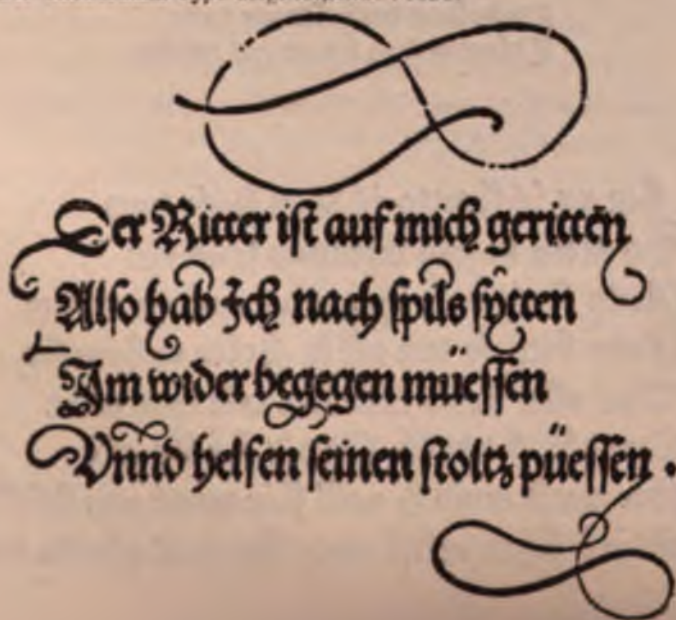 Der Ritter iſt auf mich geritten
Alſo hab Ich nach ſpils ſytten
Im wider begegen müeſſen
Vnnd helfen ſeinen ſtoltz püeſſen.